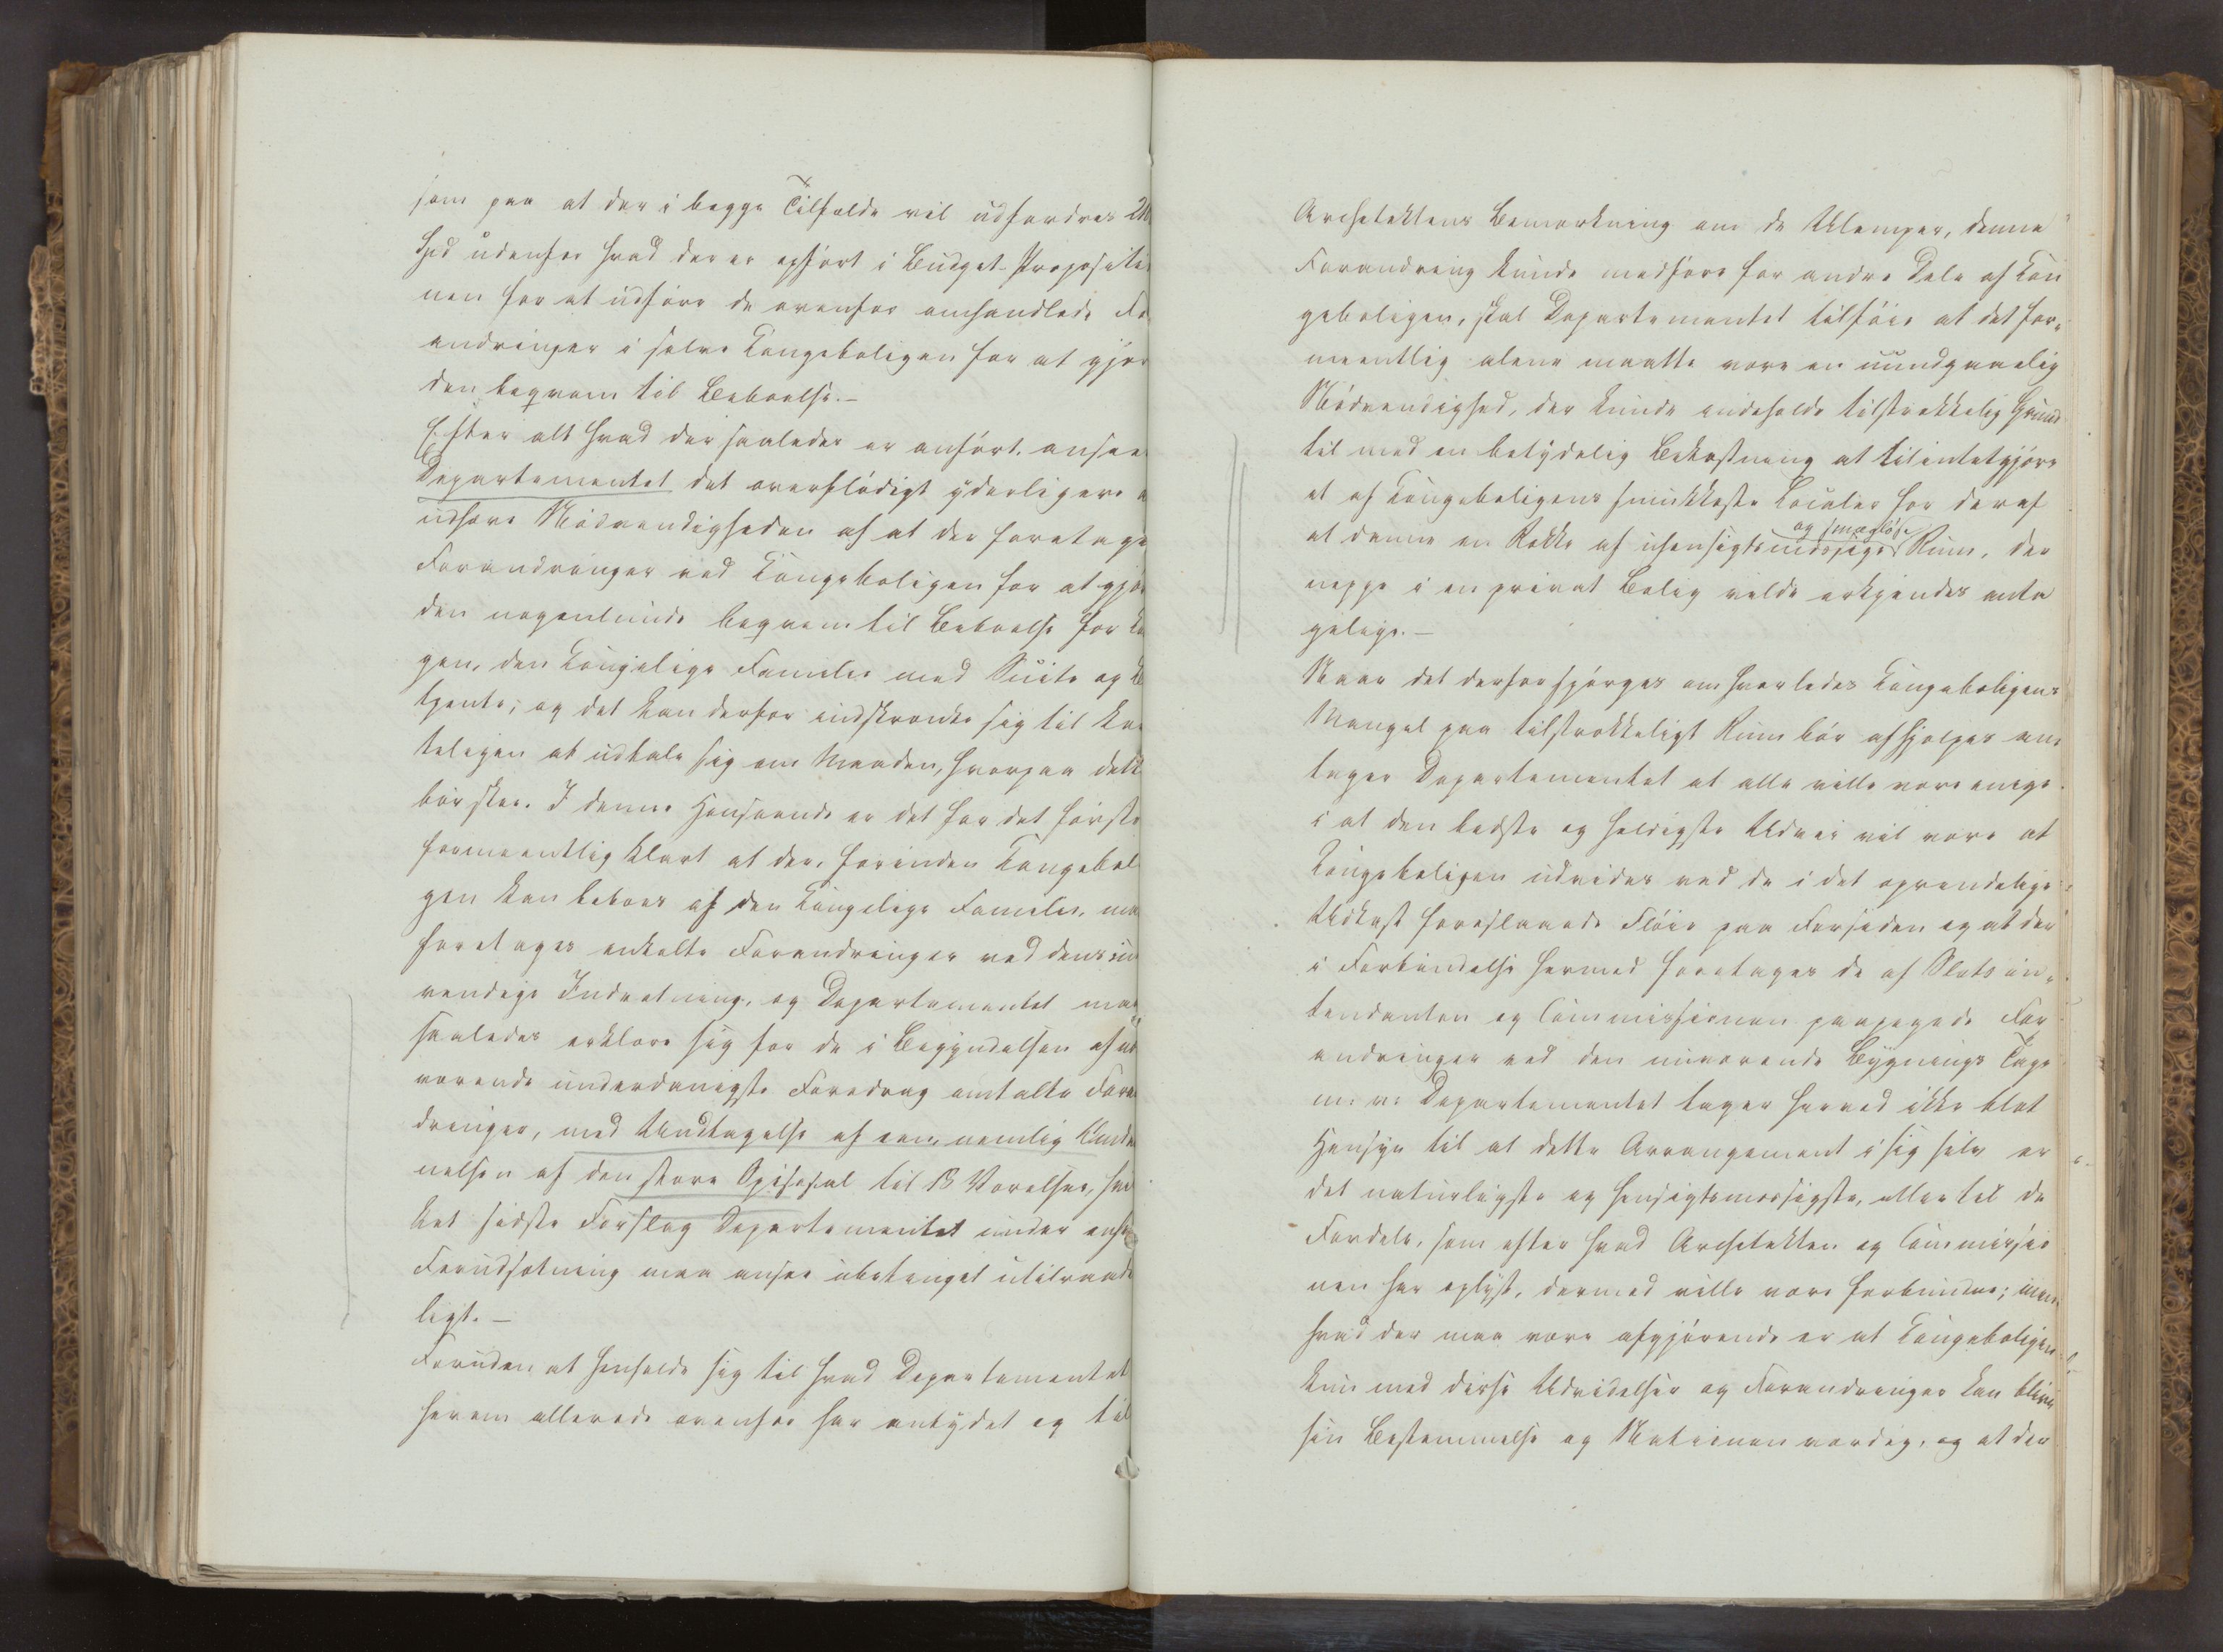 som paa at der i begge Tilfælde vil udfordres 210
Spd udenfor hvad der er opført i Budget-Propositio
nen for at udføre de ovenfor omhandlede For
andringer i selve Kongeboligen for at gjør
den beqvem til Beboelse.—
Efter alt hvad der saaledes er anført, anseer
Departementet det overflødigt yderligere a
udhæve Nødvendigheden af at der foretage
Forandringer ved Kongeboligen for at gjør
den nogenlunde beqvem til Beboelse for Ko
gen, den Kongelige Familie med Suite og Be
tjente; og det kan derfor indskrænke sig til kor
teligen at udtale sig om Maaden, hvorpaa dette
bør skee. I denne Henseende er det for det første
formeentlig klart at der, forinden Kongebol
gen kan beboes af den Kongelige Familie, maa
foretages enkelte Forandringer ved dens ind
vendige Indretning, og Departementet maa
saaledes erklære sig for de i Begyndelsen af nær
værende underdanigste Foredrag omtalte Foran
dringer, med Undtagelse af een nemlig Omdan
nelsen af den store Spisesal til 13 Værelser, hvil
ket sidste Forslag Departementet under enhver
Forudsætning maa ansee ubetinget utilraade
ligt.—
Foruden at henholde sig til hvad Departementet
herom allerede ovenfor har antydet og til
Architektens Bemærkning om de Ulemper, denne
Forandring kunde medføre for andre Dele af Kon
geboligen, skal Departementet tilføie at det for-
meentlig alene maatte være en uundgaaelig
Nødvendighed, der kunde indeholde tilstrækkelig Grund
til med en betydelig Bekostning at tilintetgjøre
et af Kongeboligens smukkeste Localer for deraf
og smagløse
at danne en Række af uhensigtsmæssige Rum, der
neppe i en privat Bolig vilde erkjendes anta
gelige.—
Naar det derfor spørges om hvorledes Kongeboligens
Mangel paa tilstrækkeligt Rum bør afhjelpes an
tager Departementet at alle ville være enige
i at den bedste og heldigste Udvei vil være at
Kongeboligen udvides ved de i det oprindelige
Udkast foreslaaede Fløie paa Forsiden og at der
i Forbindelse hermed foretages de af Slotsin-
tendanten og Commissionen paapegede For
andringer ved den nuværende Bygnings Tage
m: v: Departementet tager herved ikke blot
Hensyn til at dette Arrangement i sig selv er
det naturligste og hensigtsmæssigste, eller til de
Fordele, som efter hvad Architekten og Commissio
nen har oplyst, dermed ville være forbundne; men
hvad der maa være afgjørende er at Kongeboligen
kun med disse Udvidelser og Forandringer kan blive
sin Bestemmelse og Nationen værdig, og at der